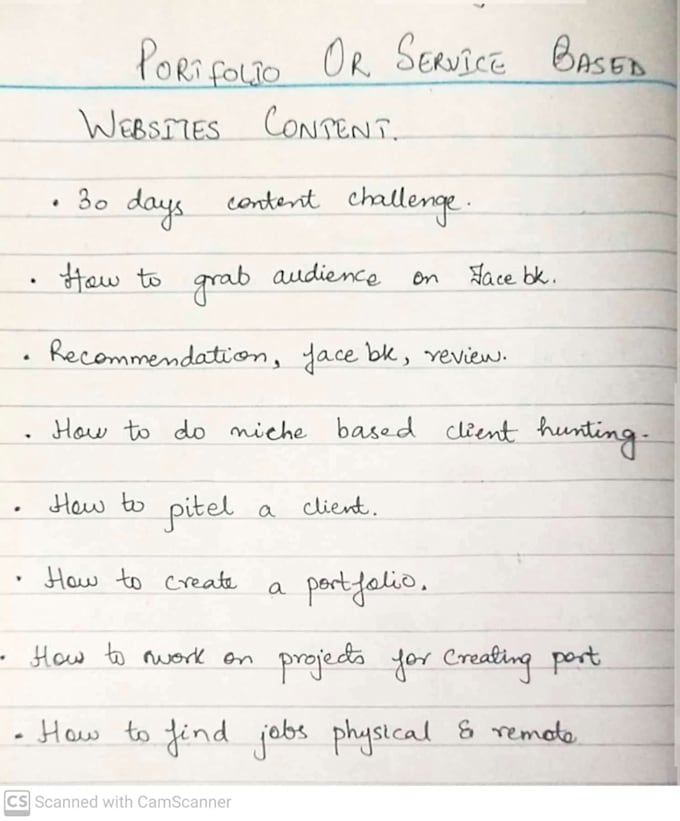 PORTFOLIO OR SERVICE BASED
WEBSITES CONTENT.
• 30 days content challenge.
• How to grab audience on Face bk.
• Recommendation, face bk, review.
• How to do niche based client hunting.
• How to pitel a client.
• How to create a portfolio.
• How to work on projects for creating port
• How to find jobs physical & remote
CS Scanned with CamScanner